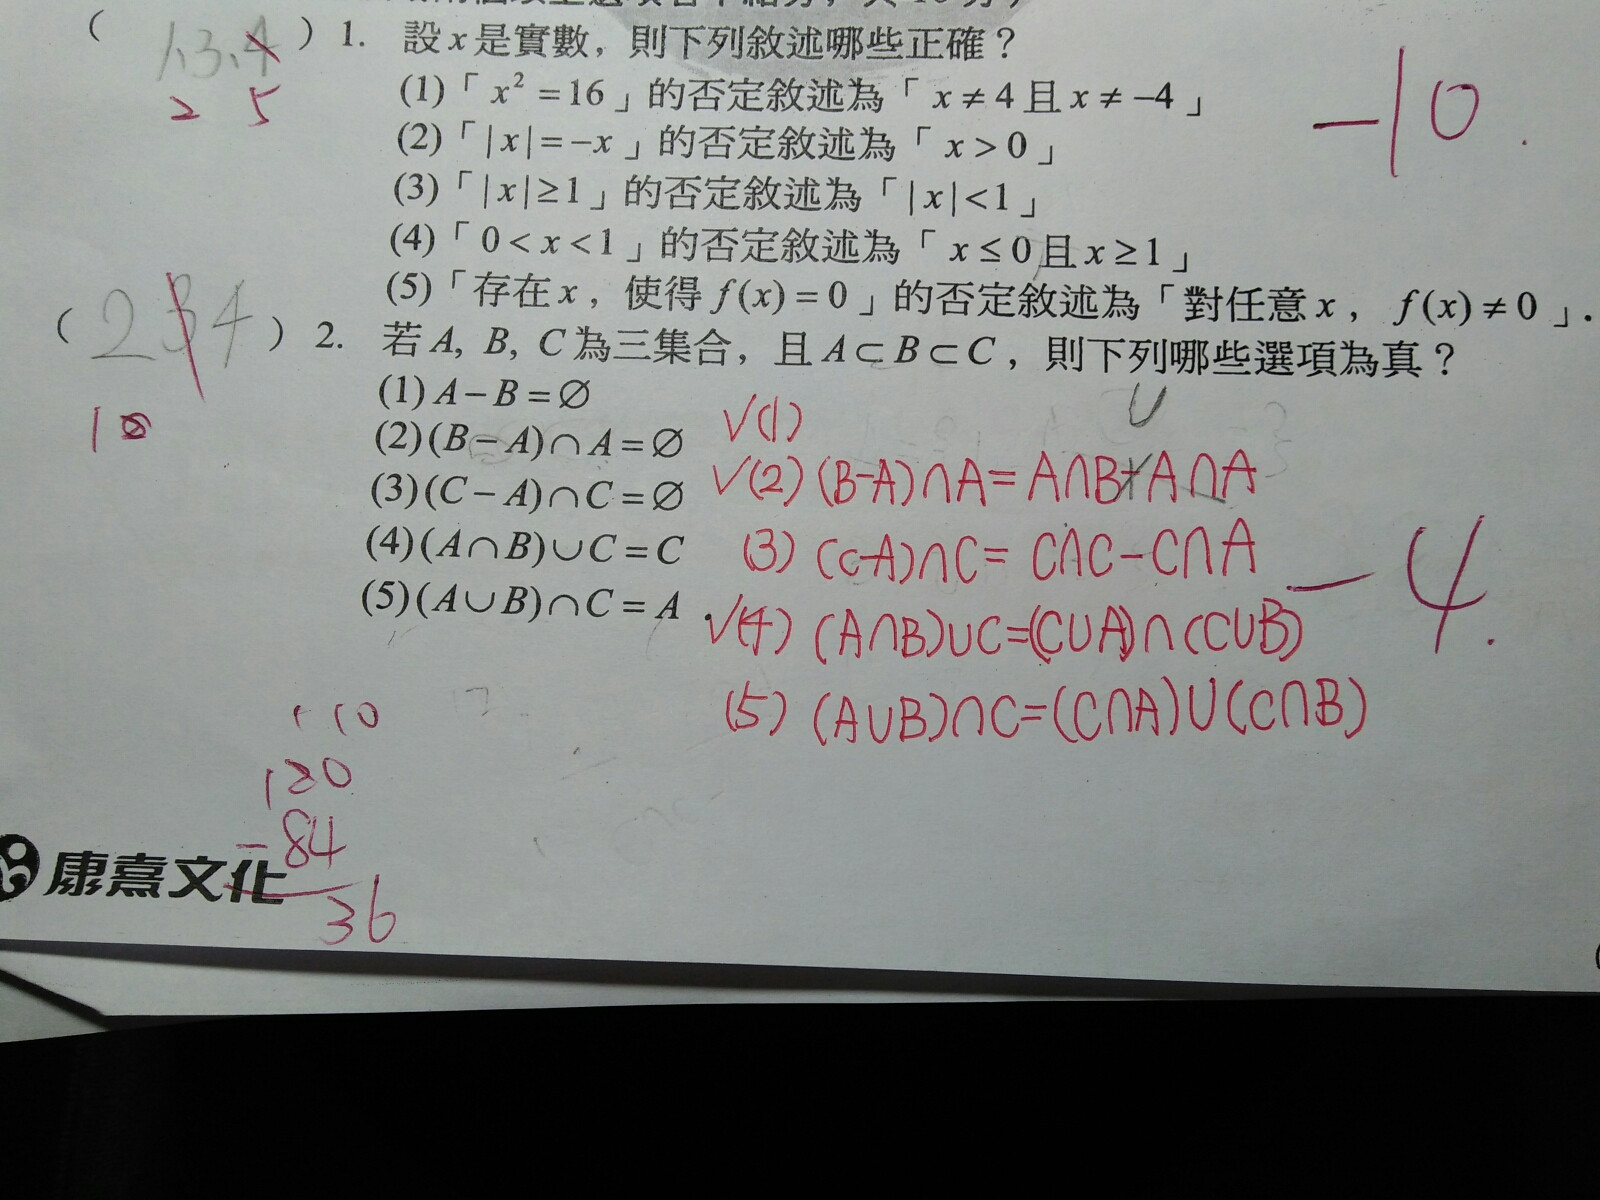 ( 1.3.4 ) 1. 設 x 是實數，則下列敘述哪些正確？
2 5
(1)「x² = 16」的否定敘述為「x ≠ 4 且 x ≠ −4」
−10.
(2)「|x| = −x」的否定敘述為「x > 0」
(3)「|x| ≥ 1」的否定敘述為「|x| < 1」
(4)「0 < x < 1」的否定敘述為「x ≤ 0 且 x ≥ 1」
(5)「存在 x，使得 f(x) = 0」的否定敘述為「對任意 x，f(x) ≠ 0」.
( 234 ) 2. 若 A, B, C 為三集合，且 A ⊂ B ⊂ C，則下列哪些選項為真？
1
(1) A − B = ∅
(2) (B − A) ∩ A = ∅
(3) (C − A) ∩ C = ∅
(4) (A ∩ B) ∪ C = C
(5) (A ∪ B) ∩ C = A .
√(1)
U
√(2) (B-A)∩A= A∩B-A∩A
(3) (C-A)∩C= C∩C-C∩A
−4.
√(4) (A∩B)∪C=(C∪A)∩(C∪B)
(5) (A∪B)∩C=(C∩A)∪(C∩B)
1 10
120
-84
36
康熹文化